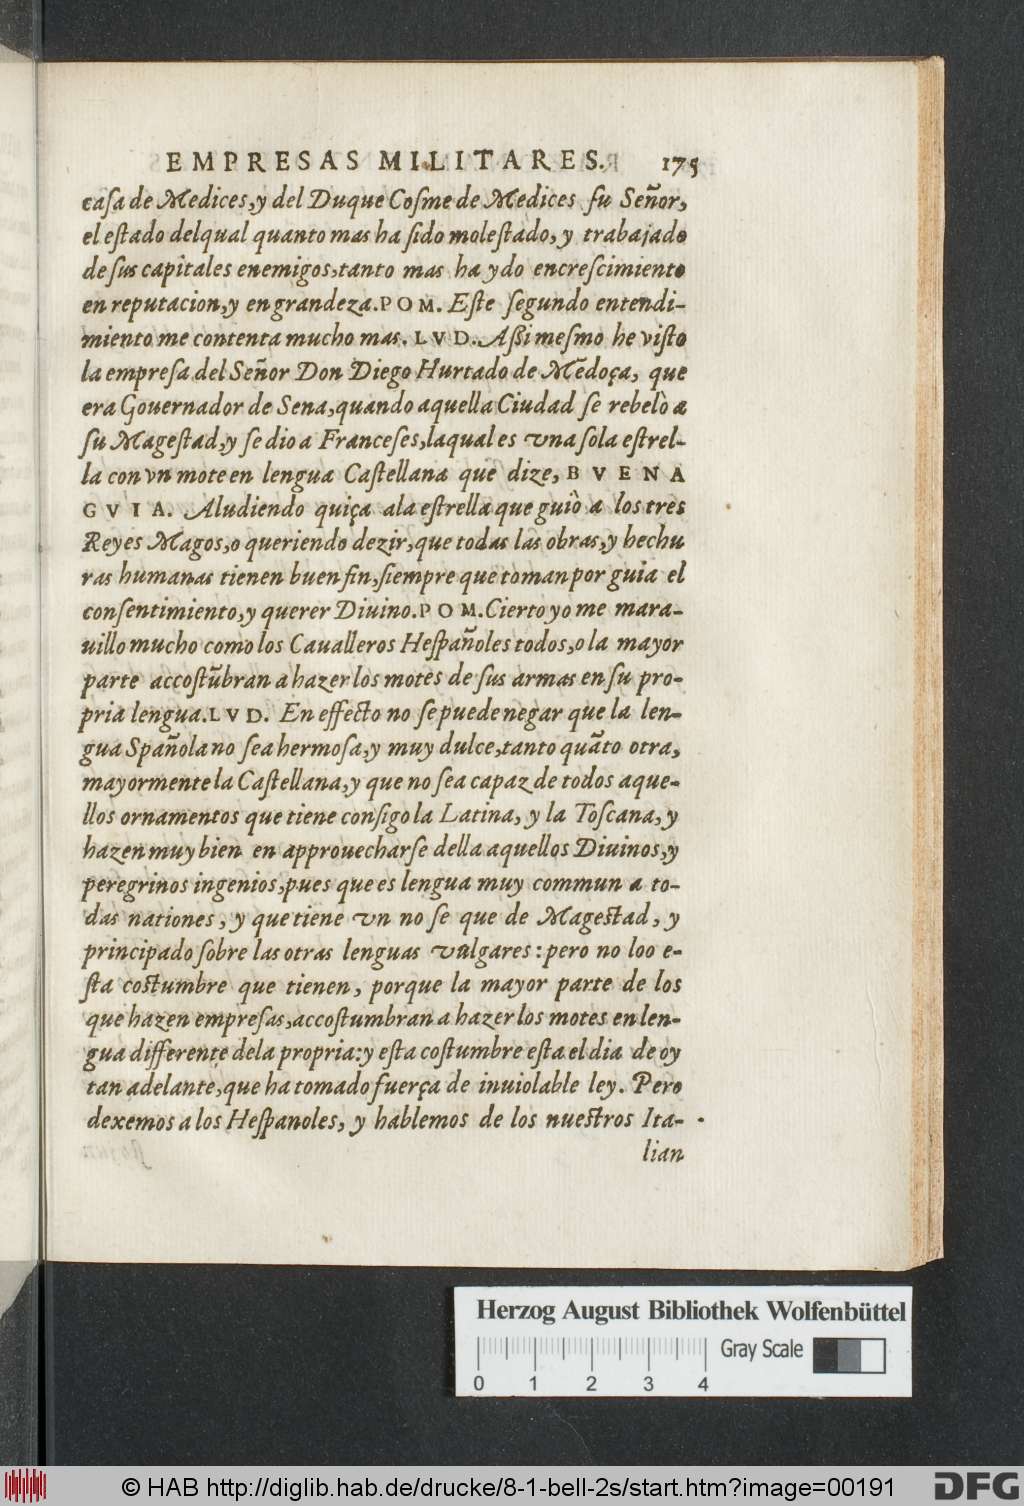 EMPRESAS MILITARES. 175
casa de Medices, y del Duque Cosme de Medices su Señor,
el estado del qual quanto mas ha sido molestado, y trabajado
de sus capitales enemigos, tanto mas ha ydo encrescimiento
en reputacion, y en grandeza. POM. Este segundo entendi-
miento me contenta mucho mas. LVD. Assi mesmo he visto
la empresa del Señor Don Diego Hurtado de Mēdoça, que
era Gouernador de Sena, quando aquella Ciudad se rebelò a
su Magestad, y se dio a Franceses, laqual es vna sola estrel-
la con vn mote en lengua Castellana que dize, BVENA
GVIA. Aludiendo quiça ala estrella que guiò a los tres
Reyes Magos, o queriendo dezir, que todas las obras, y hechu
ras humanas tienen buen fin, siempre que toman por guia el
consentimiento, y querer Diuino. POM. Cierto yo me mara-
uillo mucho como los Caualleros Hespañoles todos, o la mayor
parte accostūbran a hazer los motes de sus armas en su pro-
pria lengua. LVD. En effecto no se puede negar que la len-
gua Spañola no sea hermosa, y muy dulce, tanto quāto otra,
mayormente la Castellana, y que no sea capaz de todos aque-
llos ornamentos que tiene consigo la Latina, y la Toscana, y
hazen muy bien en approuecharse della aquellos Diuinos, y
peregrinos ingenios, pues que es lengua muy commun a to-
das nationes, y que tiene vn no se que de Magestad, y
principado sobre las otras lenguas vulgares: pero no loo e-
sta costumbre que tienen, porque la mayor parte de los
que hazen empresas, accostumbran a hazer los motes en len-
gua differente dela propria: y esta costumbre esta el dia de oy
tan adelante, que ha tomado fuerça de inuiolable ley. Pero
dexemos a los Hespanoles, y hablemos de los nuestros Ita-
lian
Herzog August Bibliothek Wolfenbüttel
Gray Scale
0 1 2 3 4
© HAB http://diglib.hab.de/drucke/8-1-bell-2s/start.htm?image=00191
DFG